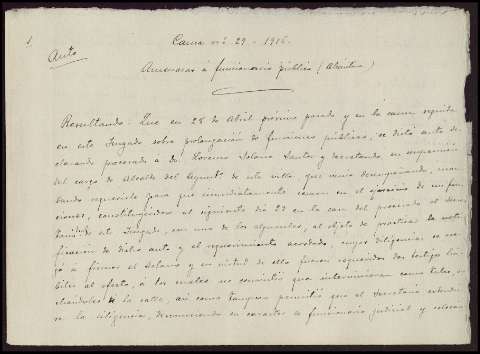 1
Auto
Causa nº 29 - 1916.
Amenazas á funcionario público (Alcalde)
Resultando: Que en 28 de Abril próximo pasado y en la causa seguida
en este Juzgado sobre prolongación de funciones públicas, se dictó auto de-
clarando procesado á D. Lorenzo Solano y decretando su suspensión
del cargo de Alcalde del de esta villa, que venía desempeñando, man-
dando requerirle para que inmediatamente cesara en el ejercicio de sus fun-
ciones, constituyéndose al siguiente día 29 en la casa del procesado el Secre-
tario de este Juzgado, con uno de los alguaciles, al objeto de practicar la noti-
ficación de dicho auto y el requerimiento acordado, cuyas diligencias se ne-
gó á firmar el Solano y en virtud de ello fueron requeridos dos testigos há-
biles al efecto, á los cuales no consintió que intervinieran como tales,
echándoles á la calle, así como tampoco permitió que el Secretario extendie-
ra la diligencia, desconociendo su carácter de funcionario judicial y